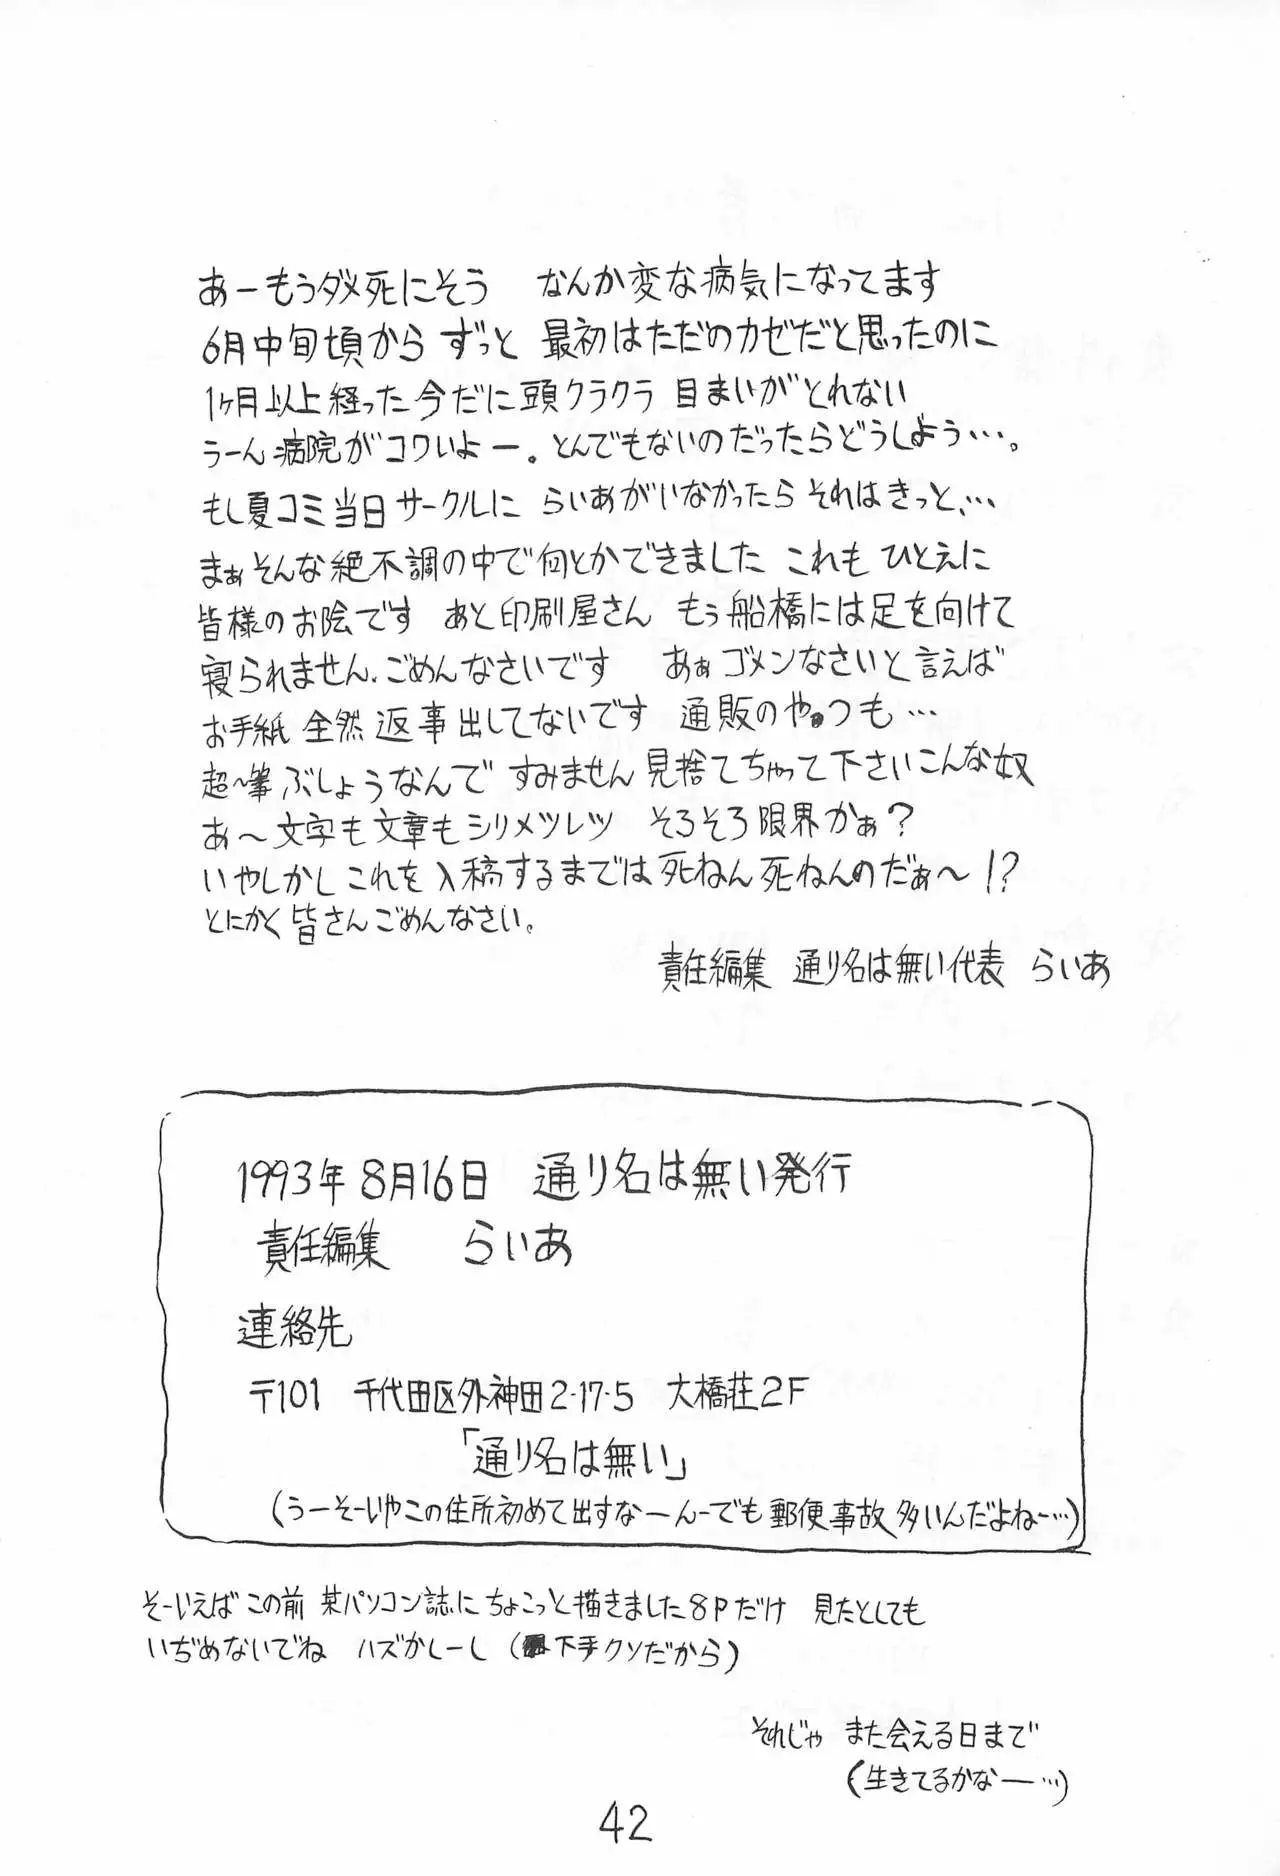 あーもうダメ死にそう　なんか変な病気になってます
6月中旬頃から ずっと 最初はただのカゼだと思ったのに
1ヶ月以上経った今だに頭クラクラ 目まいがとれない
うーん病院がコワいよー。とんでもないのだったらどうしよう…。
もし夏コミ当日サークルに らいあがいなかったら それはきっと、…
まぁそんな絶不調の中で何とかできました これも ひとえに
皆様のお陰です　あと印刷屋さん　もぅ船橋には足を向けて
寝られません、ごめんなさいです　あぁゴメンなさいと言えば
お手紙 全然 返事出してないです 通販のやつも…
超〜筆ぶしょうなんで すみません見捨てちゃって下さいこんな奴
あ〜文字も文章もシリメツレツ　そろそろ限界かぁ?
いやしかしこれを入稿するまでは死ねん死ねんのだぁ〜!?
とにかく皆さんごめんなさい。
責任編集 通り名は無い代表 らいあ
1993年8月16日　通り名は無い発行
責任編集　らいあ
連絡先
〒101　千代田区外神田2-17-5　大橋荘2F
「通り名は無い」
(うーそーいやこの住所初めて出すなーんーでも郵便事故多いんだよねー…)
そーいえばこの前 某パソコン誌にちょこっと描きました8Pだけ　見たとしても
いぢめないでね　ハズかしーし(下手クソだから)
それじゃ また会える日まで
(生きてるかなー…)
42